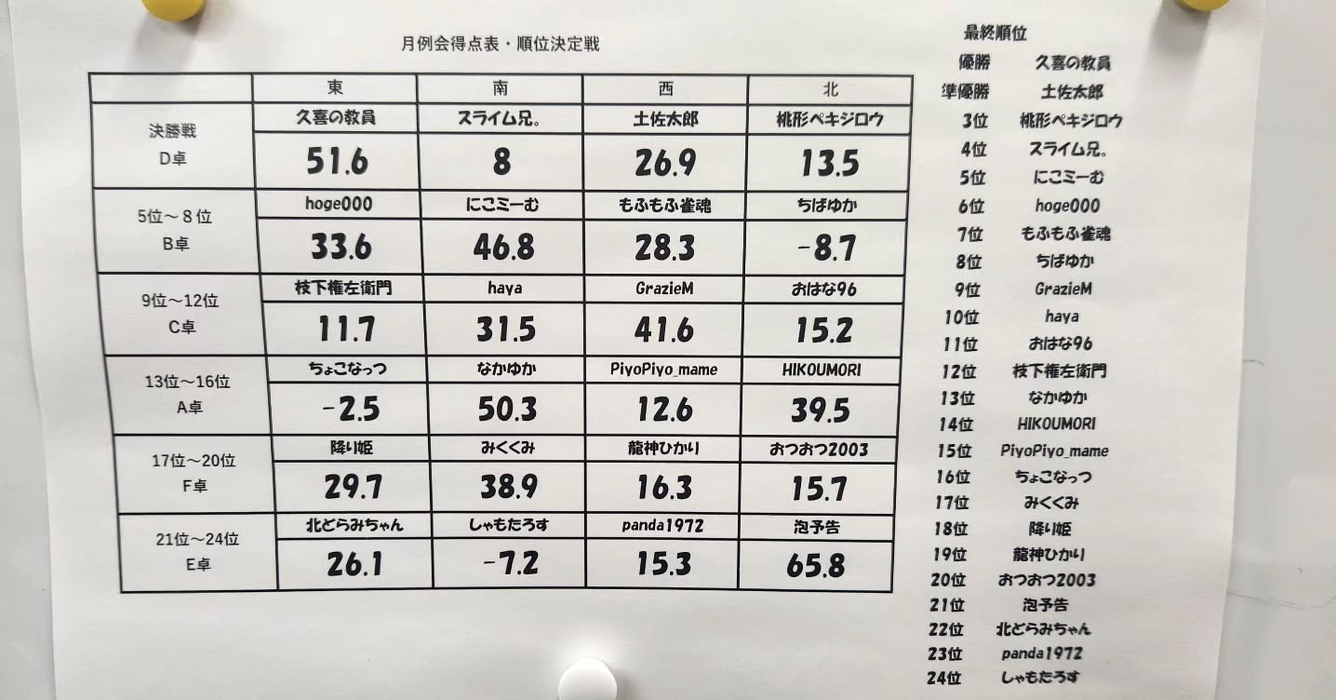 月例会得点表・順位決定戦
東 南 西 北
決勝戦 D卓
久喜の教員 スライム兄。 土佐太郎 桃形ペキジロウ
51.6 8 26.9 13.5
5位～8位 B卓
hoge000 にこミーむ もふもふ雀魂 ちばゆか
33.6 46.8 28.3 -8.7
9位～12位 C卓
枝下権左衛門 haya GrazieM おはな96
11.7 31.5 41.6 15.2
13位～16位 A卓
ちょこなっつ なかゆか PiyoPiyo_mame HIKOUMORI
-2.5 50.3 12.6 39.5
17位～20位 F卓
降り姫 みくくみ 龍神ひかり おつおつ2003
29.7 38.9 16.3 15.7
21位～24位 E卓
北どらみちゃん しゃもたろす panda1972 泡予告
26.1 -7.2 15.3 65.8
最終順位
優勝 久喜の教員
準優勝 土佐太郎
3位 桃形ペキジロウ
4位 スライム兄。
5位 にこミーむ
6位 hoge000
7位 もふもふ雀魂
8位 ちばゆか
9位 GrazieM
10位 haya
11位 おはな96
12位 枝下権左衛門
13位 なかゆか
14位 HIKOUMORI
15位 PiyoPiyo_mame
16位 ちょこなっつ
17位 みくくみ
18位 降り姫
19位 龍神ひかり
20位 おつおつ2003
21位 泡予告
22位 北どらみちゃん
23位 panda1972
24位 しゃもたろす